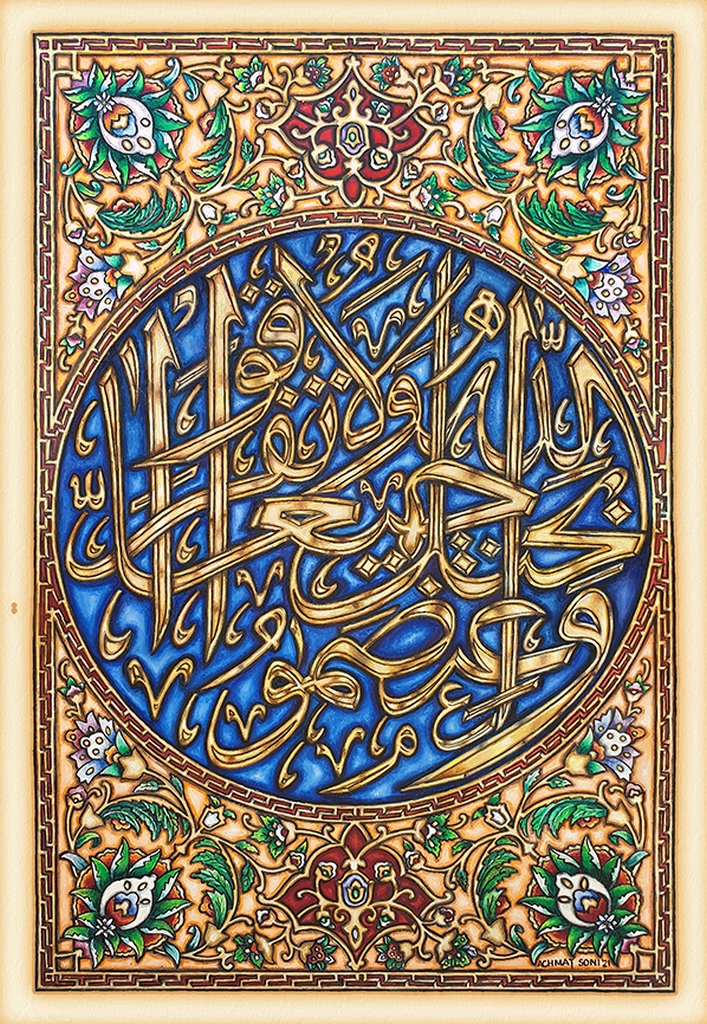 واعتصموا بحبل الله جميعا ولا تفرقوا
ACHMAT SONI '21